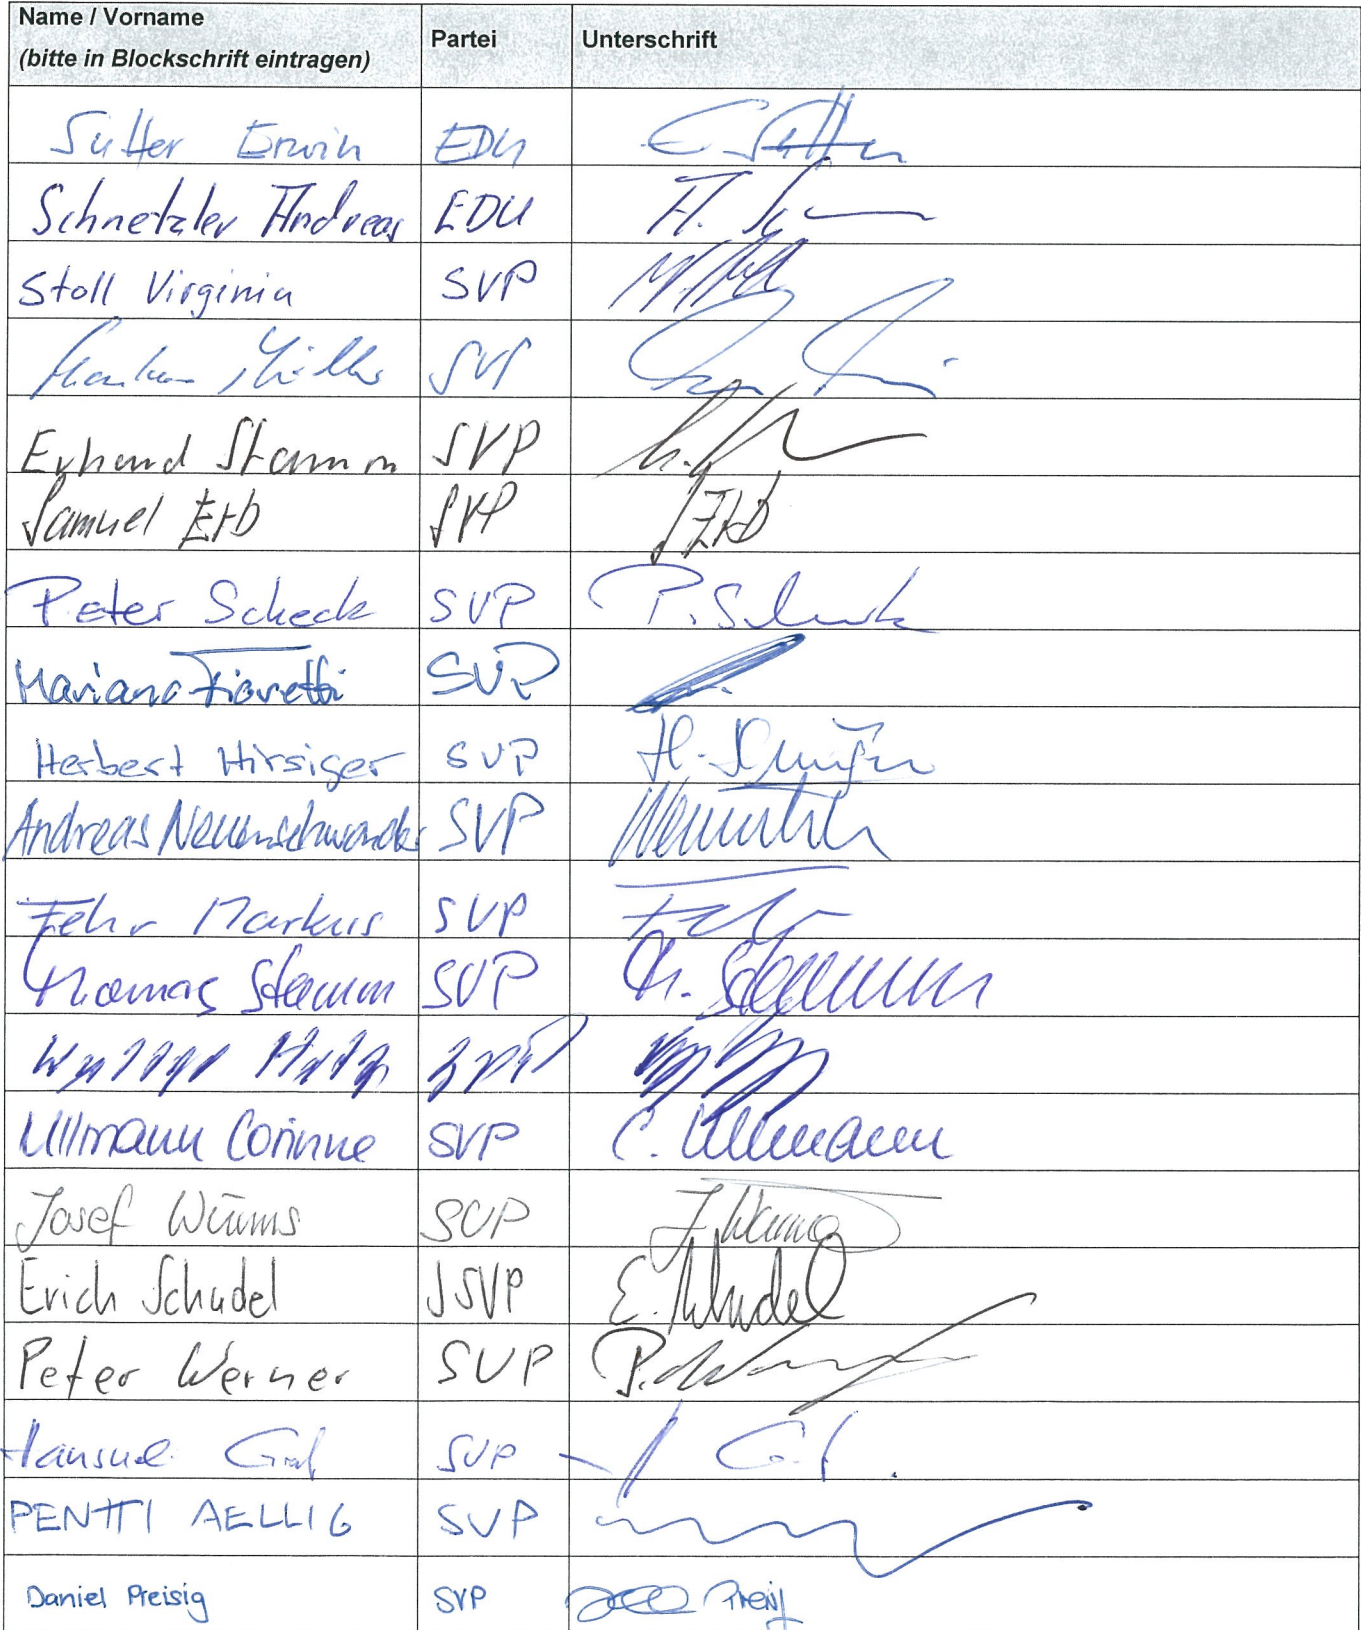 Name / Vorname
(bitte in Blockschrift eintragen) Partei Unterschrift
Sutter Erwin EDU E Sutter
Schnetzler Andreas EDU A.
Stoll Virginia SVP
Markus Müller SVP
Erhard Stamm SVP
Samuel Erb SVP S Erb
Peter Scheck SVP P. Scheck
Mariano Fioretti SVP
Herbert Hirsiger SVP H. Hirsiger
Andreas Neuenschwander SVP
Fehr Markus SVP Fehr
Thomas Stamm SVP Th. Stamm
SVP
Ullmann Corinne SVP C. Ullmann
Josef Würms SVP J. Würms
Erich Schudel JSVP E. Schudel
Peter Werner SVP P. Werner
Hansueli Graf SVP H Graf
PENTTI AELLIG SVP
Daniel Preisig SVP Preisig